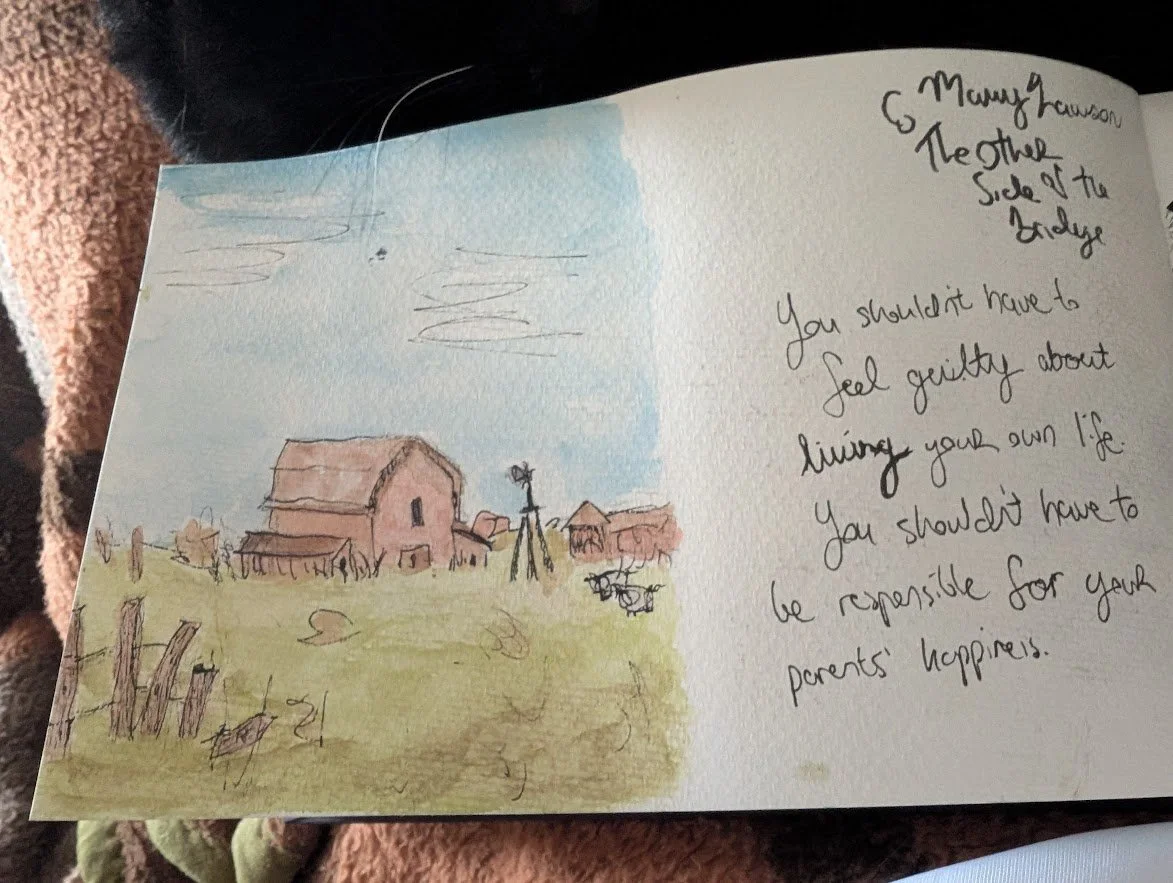 Mary Lawson
The Other
Side of the
Bridge
You shouldn't have to
feel guilty about
living your own life.
You shouldn't have to
be responsible for your
parents' happiness.